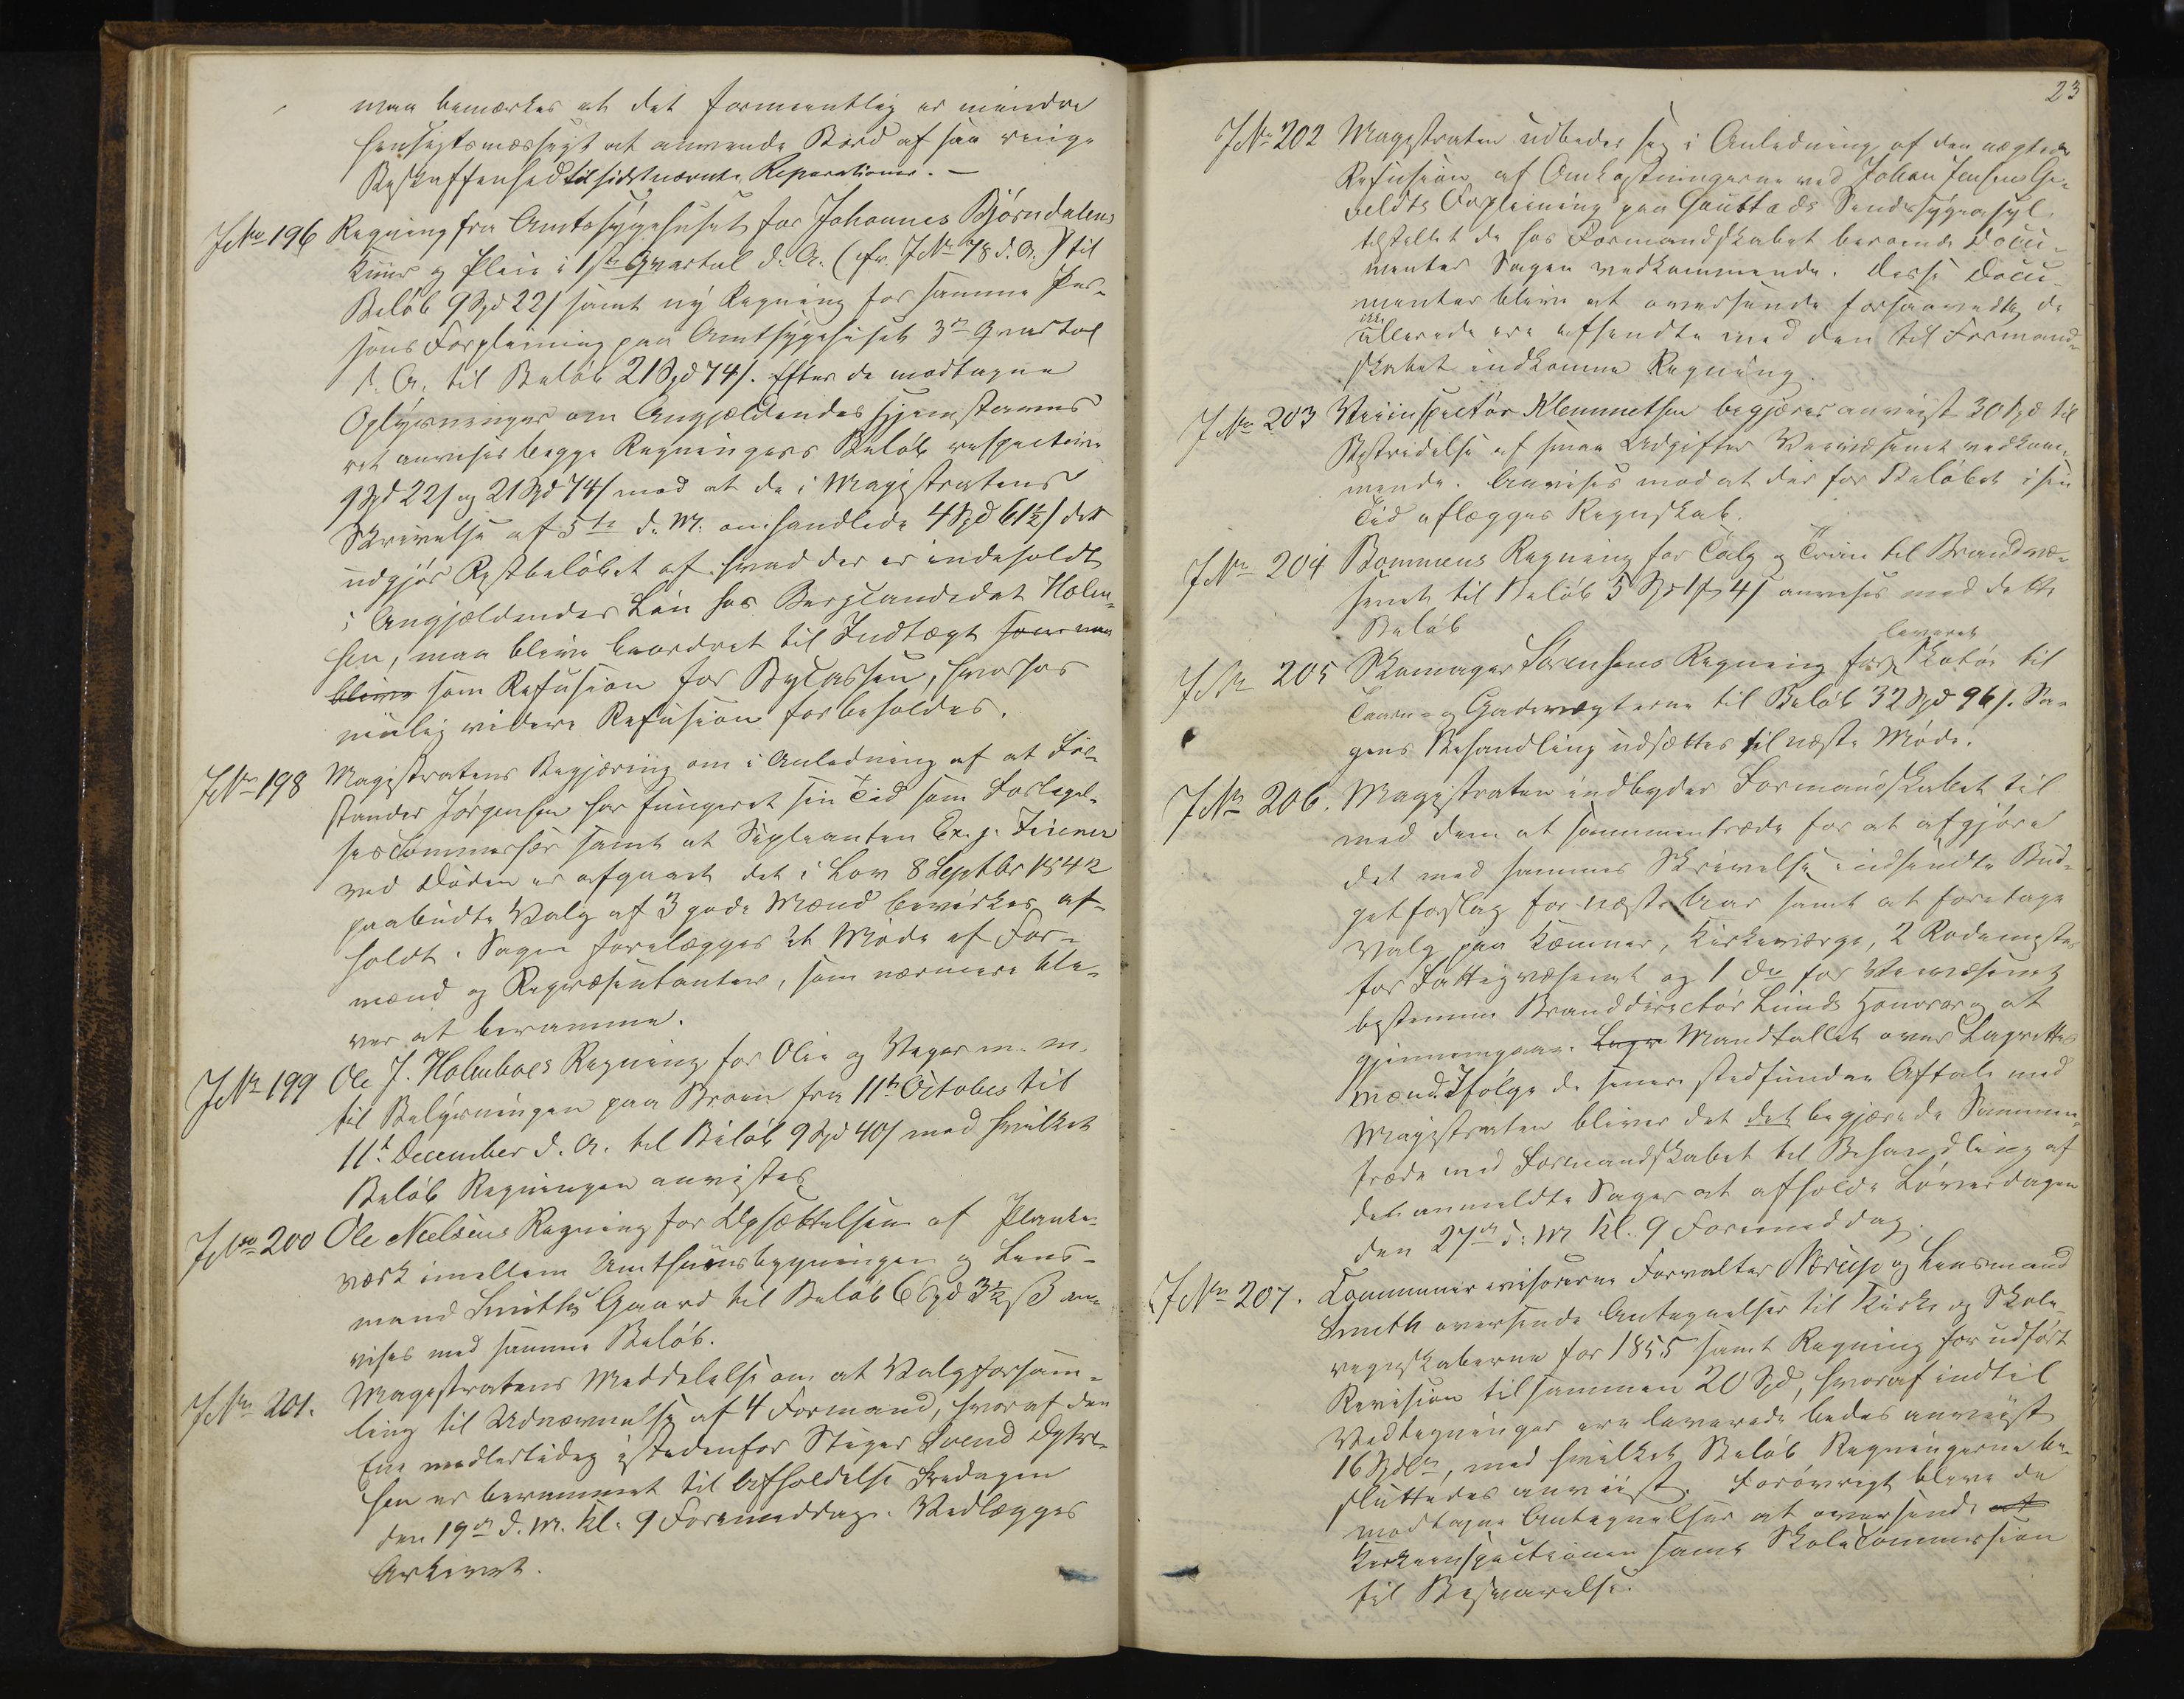 maa bemærkes at det formeentlig er mindre
hensigtsmæssigt at anvende Bord af saa ringe
Beskaffenhed til sidstnævnte Reparationer. —
JNo 196 Regning fra Amtssygehuset for Johannes Bjørndalens
Kuur og Pleie i 1ste Qvartal d. A. (cfr. JNo 78 d. A.) til
Beløb 9 Spd 22 ß samt ny Regning for samme Per-
sons Forpleining paa Amtssygehuset 3die Qvartal
d. A. til Beløb 21 Spd 74 ß. Efter de modtagne
Oplysninger om Angjældendes Hjemstavns
ret anvises begge Regningers Beløb respective
9 Spd 22 ß og 21 Spd 74 ß mod at de i Magistratens
Skrivelse af 5te d. M. omhandlede 4 Spd 61½ ß der
udgjør Restbeløbet af hvad der er indeholdt
i Angjældendes Løn hos Bergcandidat Holm-
sen, maa blive beordret til Indtægt som maa
blive som Refusion for Bycassen, hvorhos
mulig videre Refusion forbeholdes.
JNo 198 Magistratens Begjæring om i Anledning af at For-
stander Jørgensen har fungeret sin Tid som Forligel-
sescommissær samt at Supleanten Chr. J.
ved Døden er afgaaet det i Lov 8 Septbr 1842
paabudte Valg af 3 gode Mænd bevirkes af-
holdt. Sagen forelægges et Møde af For-
mænd og Repræsentanter, som nærmere bli-
ver at beramme.
JNo 199 Ole J. Holmboes Regning for Olie og Væger m. m.
til Belysningen paa Broen fra 11te October til
11te December d. A. til Beløb 9 Spd 40 ß med hvilket
Beløb Regningen anvistes
JNo 200 Ole Nielsens Regning for Opsættelsen af Planke-
værk imellem Amthuusbygningen og Lens-
mand Smiths Gaard til Beløb 6 Spd 3½ ß an-
vises med samme Beløb.
JNo 201. Magistratens Meddelelse om at Valgforsam-
ling til Udnævnelse af 4 Formænd, hvoraf den
Ene midlertidig istedenfor Stiger Svend
sen er berammet til Afholdelse Fredagen
den 19de d. M. Kl. 9 Formiddag. Vedlægges
Arkivet.
23
JNo 202 Magistraten udbeder sig i Anledning af den nægtede
Refusion af Omkostningerne ved Johan Jensen Ge-
veldts Forpleining paa Gaustads Sindssygeasyl
tilstillet de hos Formandskabet beroende Docu-
menter Sagen vedkommende. Disse Docu-
menter blive at oversende forsaavidt de
ikke
allerede ere afsendte med den til Formand-
skabet indkomne Regning.
JNo 203 Veiinspectør Klemmetsen begjærer anviist 30 Spd til
Bestridelse af smaa Udgifter Veivæsenet vedkom-
mende. Anvises mod at der for Beløbet i sin
Tid aflægges Regnskab.
JNo 204 Bommens Regning for Talg og Tran til Brandvæ-
senet til Beløb 5 Spd 1 ort 4 ß anvises med dette
Beløb
leveret
JNo 205 Skomager Sørensens Regning for Skotøi til
Taarn- og Gadevægterne til Beløb 32 Spd 96 ß. Sa-
gens Behandling udsættes til næste Møde.
JNo 206. Magistraten indbyder Formandskabet til
med dem at sammentræde for at afgjøre
det med sammes Skrivelse indsendte Bud-
getforslag for næste Aar samt at foretage
Valg paa Kæmner, Kirkeværge, 2 Rodemestre
for Fattigvæsenet og 1 do for Veivæsenet
bestemme Branddirectør Lunds Honorar og at
gjennemgaae Lagre Mandtallet over Lagrettes
mænd. Ifølge de senere stedfundne Aftale med
Magistraten bliver det det begjærede Sammen-
træde med Formandskabet til Behandling af
de anmeldte Sager at afholde Løverdagen
den 27de d. M Kl. 9 Formiddag.
JNo 207. Communerevisorerne Forvalter Nørup og Lensmand
Smith oversende Antegnelser til Kirke og Skole-
regnskaberne for 1855 samt Regning for udført
Revision tilsammen 20 Spd, hvoraf indtil
Vedtegninger ere leverede bedes anviist
16 Spdlr, med hvilket Beløb Regningerne be-
sluttedes anviist. Forøvrigt blive de
modtagne Antegnelser at oversende at
Kirkeinspectionen samt Skolecommission
til Besvarelse.